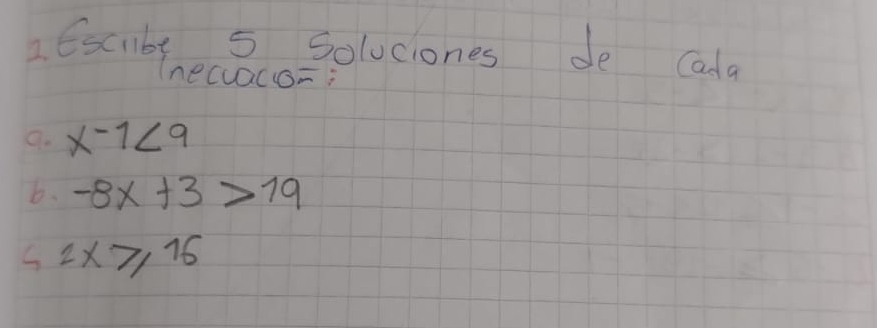 1. Escribe 5 Soluciones de Cada
Inecuación:
a. x-1<9
b. -8x+3>19
c. 2x⩾16